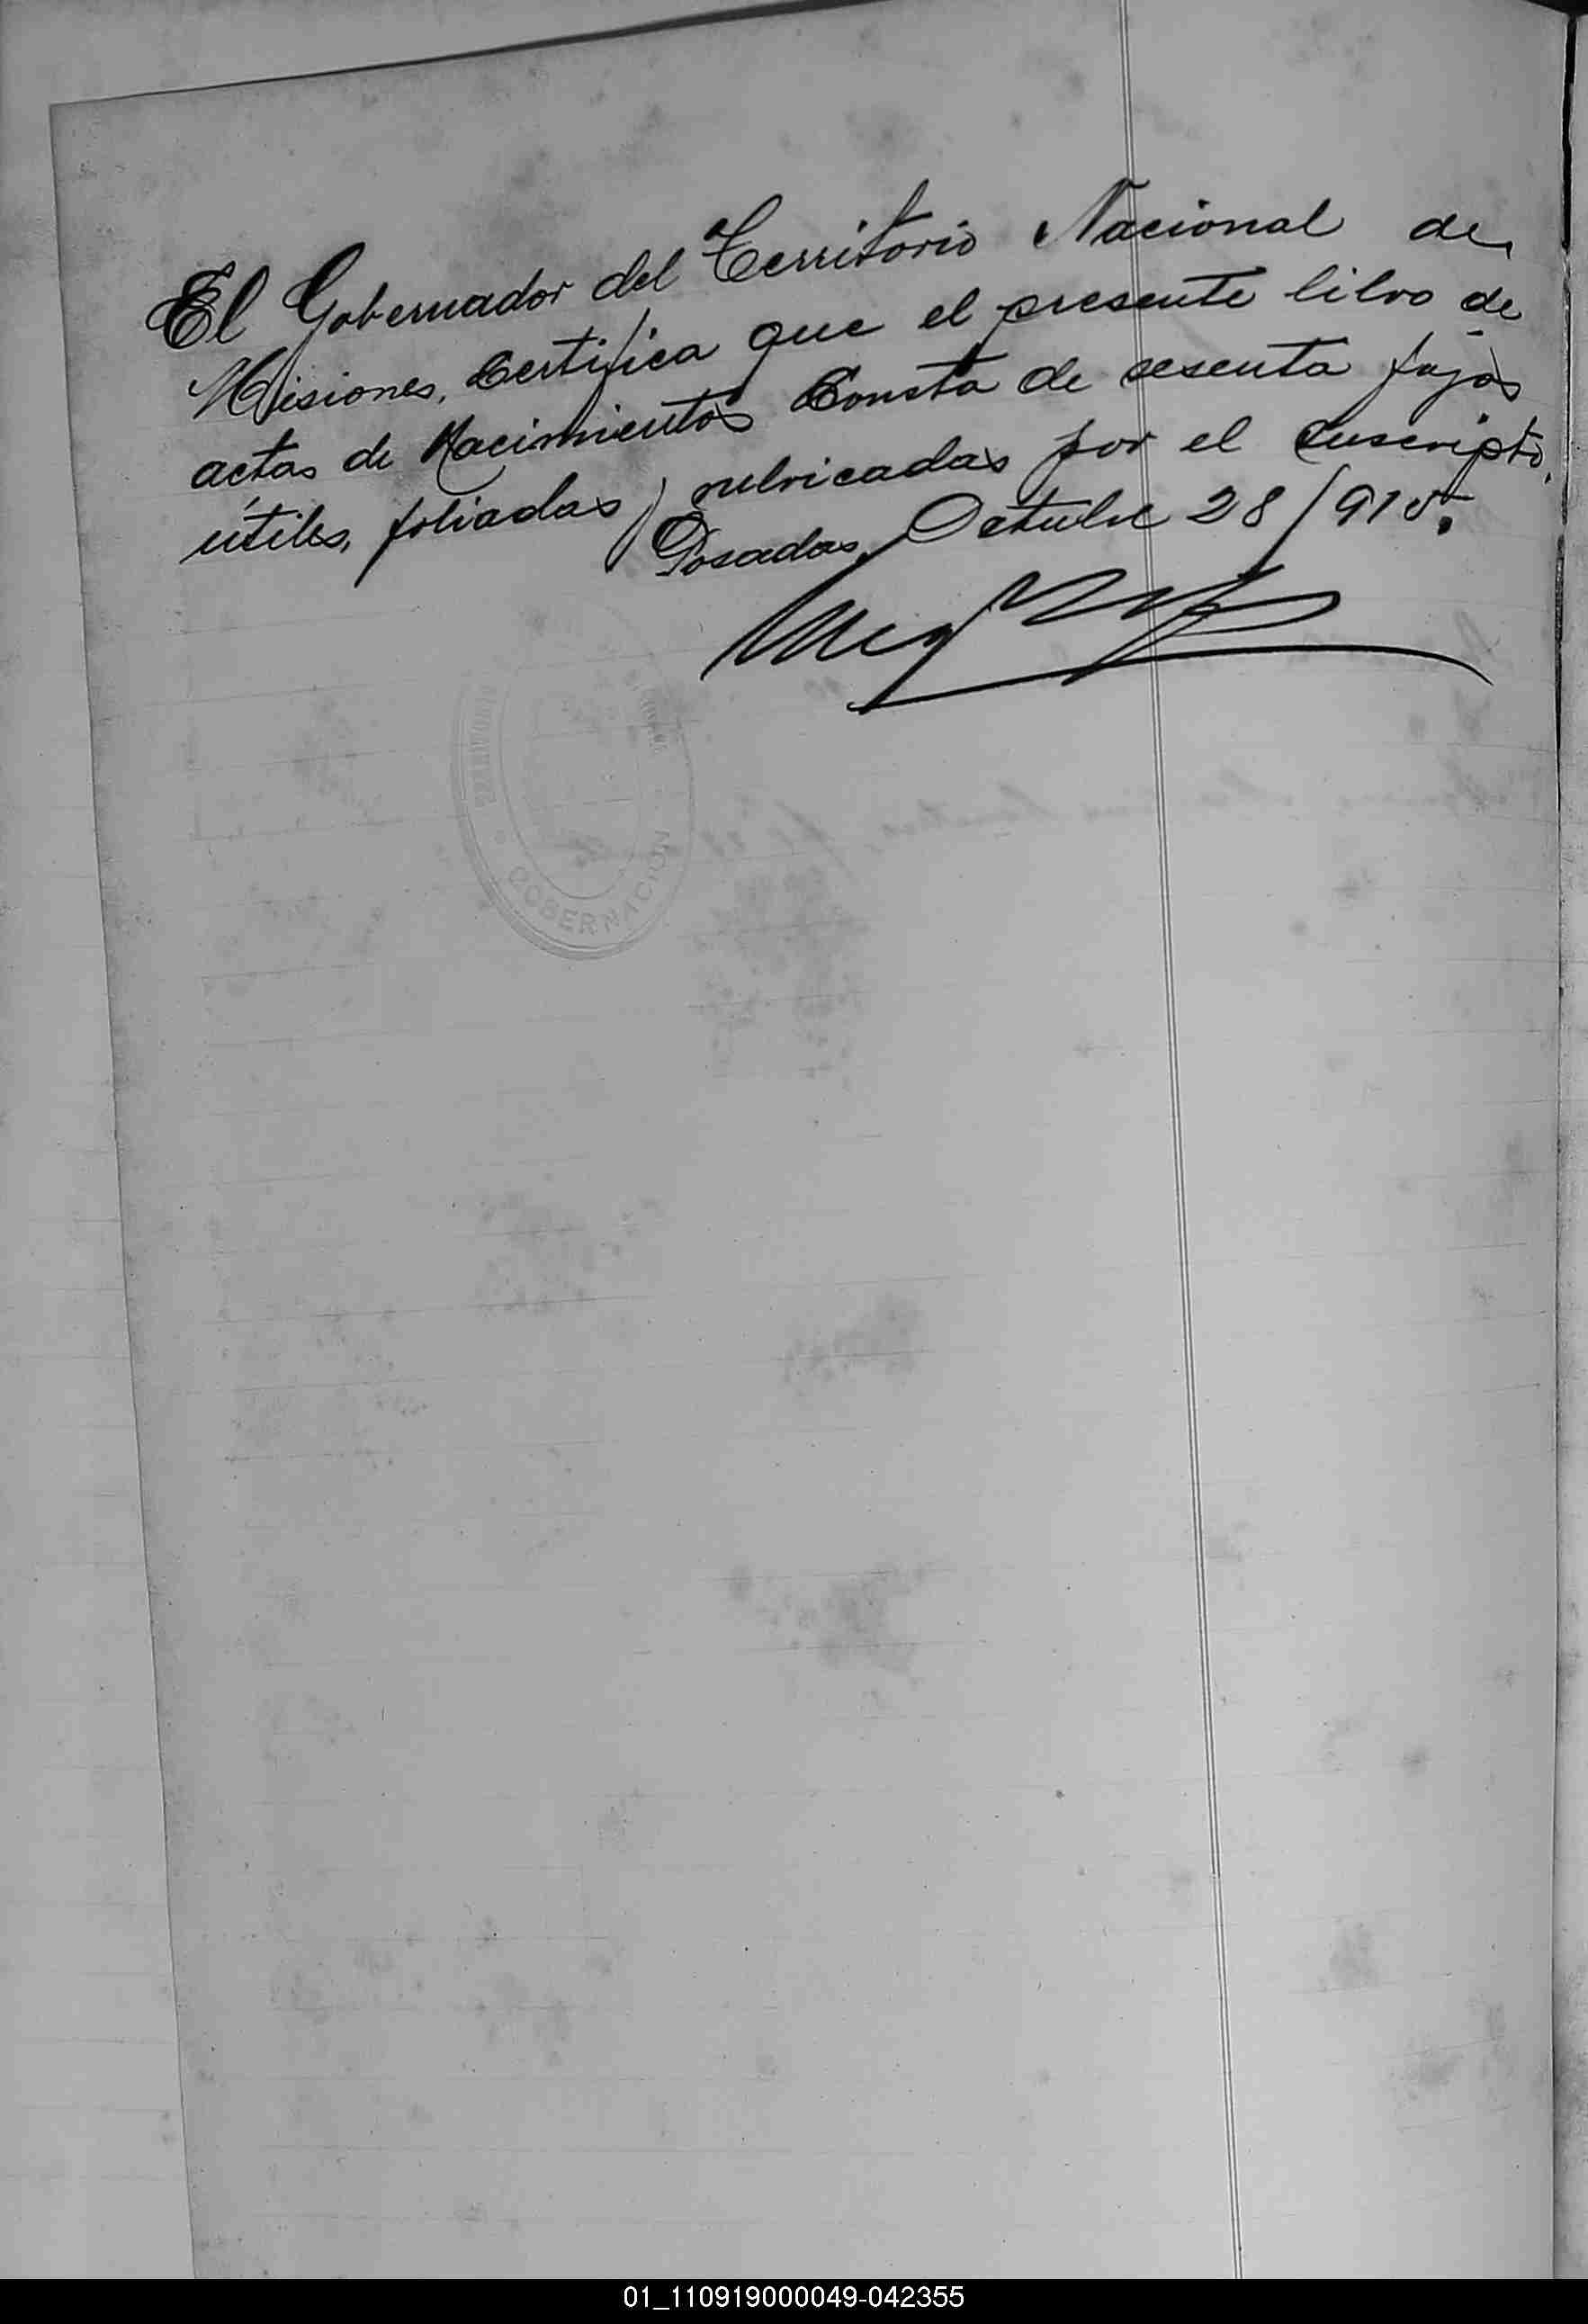 El Gobernador del Territorio Nacional de
Misiones, Certifica que el presente libro de
actas de Nacimientos Consta de sesenta fojas
útiles, foliadas y rubricadas por el suscripto.
Posadas, Octubre 28/915.
GOBERNACION
01_110919000049-042355